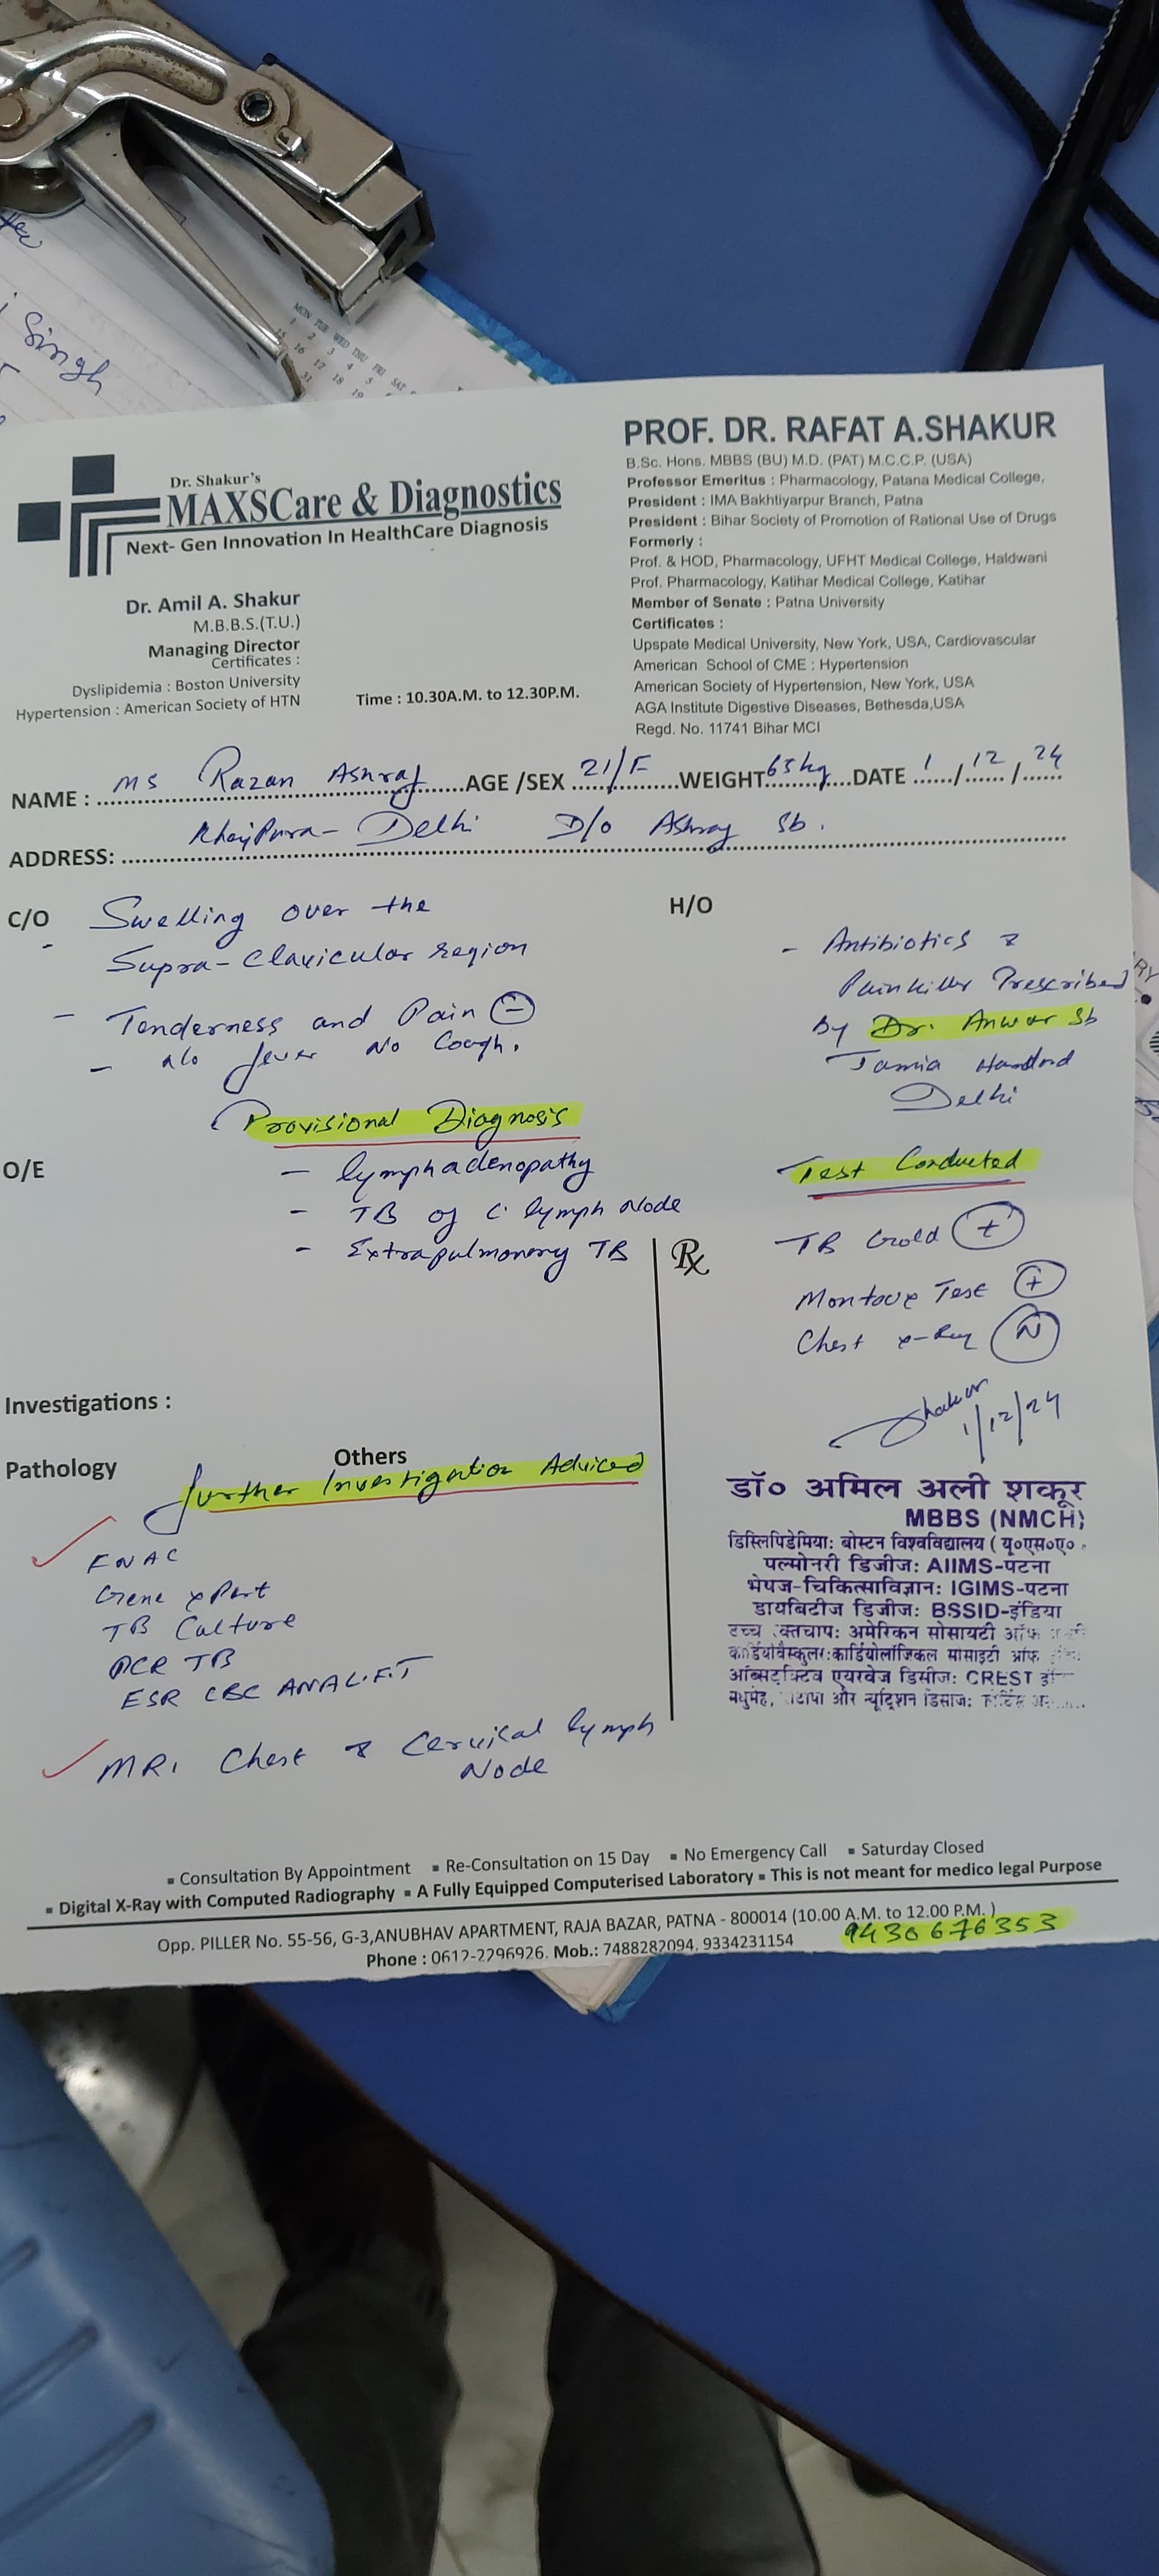 Singh
MON TUE WED THU FRI SAT
Dr. Shakur's
MAXSCare & Diagnostics
Next- Gen Innovation In HealthCare Diagnosis
Dr. Amil A. Shakur
M.B.B.S.(T.U.)
Managing Director
Certificates :
Dyslipidemia : Boston University
Hypertension : American Society of HTN
Time : 10.30A.M. to 12.30P.M.
PROF. DR. RAFAT A.SHAKUR
B.Sc. Hons. MBBS (BU) M.D. (PAT) M.C.C.P. (USA)
Professor Emeritus : Pharmacology, Patana Medical College,
President : IMA Bakhtiyarpur Branch, Patna
President : Bihar Society of Promotion of Rational Use of Drugs
Formerly :
Prof. & HOD, Pharmacology, UFHT Medical College, Haldwani
Prof. Pharmacology, Katihar Medical College, Katihar
Member of Senate : Patna University
Certificates :
Upspate Medical University, New York, USA, Cardiovascular
American School of CME : Hypertension
American Society of Hypertension, New York, USA
AGA Institute Digestive Diseases, Bethesda,USA
Regd. No. 11741 Bihar MCI
NAME : Ms Razan Ashraf AGE /SEX 21/F WEIGHT 63 kg DATE 1/12/24
ADDRESS: Delhi D/o Ashraf Sb.
C/O Swelling over the
Supra-Clavicular region
- Tenderness and Pain (-)
- No fever No Cough.
H/O
- Antibiotics &
Painkiller Prescribed
by Dr. Anwar Sb
Jamia Hamdard
Delhi
Provisional Diagnosis
O/E
- lymphadenopathy
- TB of C. lymph Node
- Extrapulmonary TB
Rx
Test Conducted
TB Gold (+)
Montoux Test (+)
Chest x-Ray (N)
Shakur
1/12/24
Investigations :
Pathology
Others
further Investigation Adviced
FNAC
Gene xPert
TB Culture
PCR TB
ESR CBC
MRI Chest & Cervical lymph
Node
डॉ० अमिल अली शकूर
MBBS (NMCH)
डिस्लिपिडेमिया: बोस्टन विश्वविद्यालय (यू०एस०ए०
पल्मोनरी डिजीज: AIIMS-पटना
भेषज-चिकित्साविज्ञान: IGIMS-पटना
डायबिटीज डिजीज: BSSID-इंडिया
उच्च रक्तचाप: अमेरिकन सोसायटी ऑफ
कार्डियोवैस्कुलर:कार्डियोलॉजिकल सोसाइटी ऑफ
ऑब्सट्रक्टिव एयरवेज डिसीज: CREST
मधुमेह, और न्यूट्रिशन डिसीज:
▪ Consultation By Appointment ▪ Re-Consultation on 15 Day ▪ No Emergency Call ▪ Saturday Closed
▪ Digital X-Ray with Computed Radiography ▪ A Fully Equipped Computerised Laboratory ▪ This is not meant for medico legal Purpose
Opp. PILLER No. 55-56, G-3,ANUBHAV APARTMENT, RAJA BAZAR, PATNA - 800014 (10.00 A.M. to 12.00 P.M. )
Phone : 0612-2296926. Mob.: 7488282094, 9334231154
9430676353